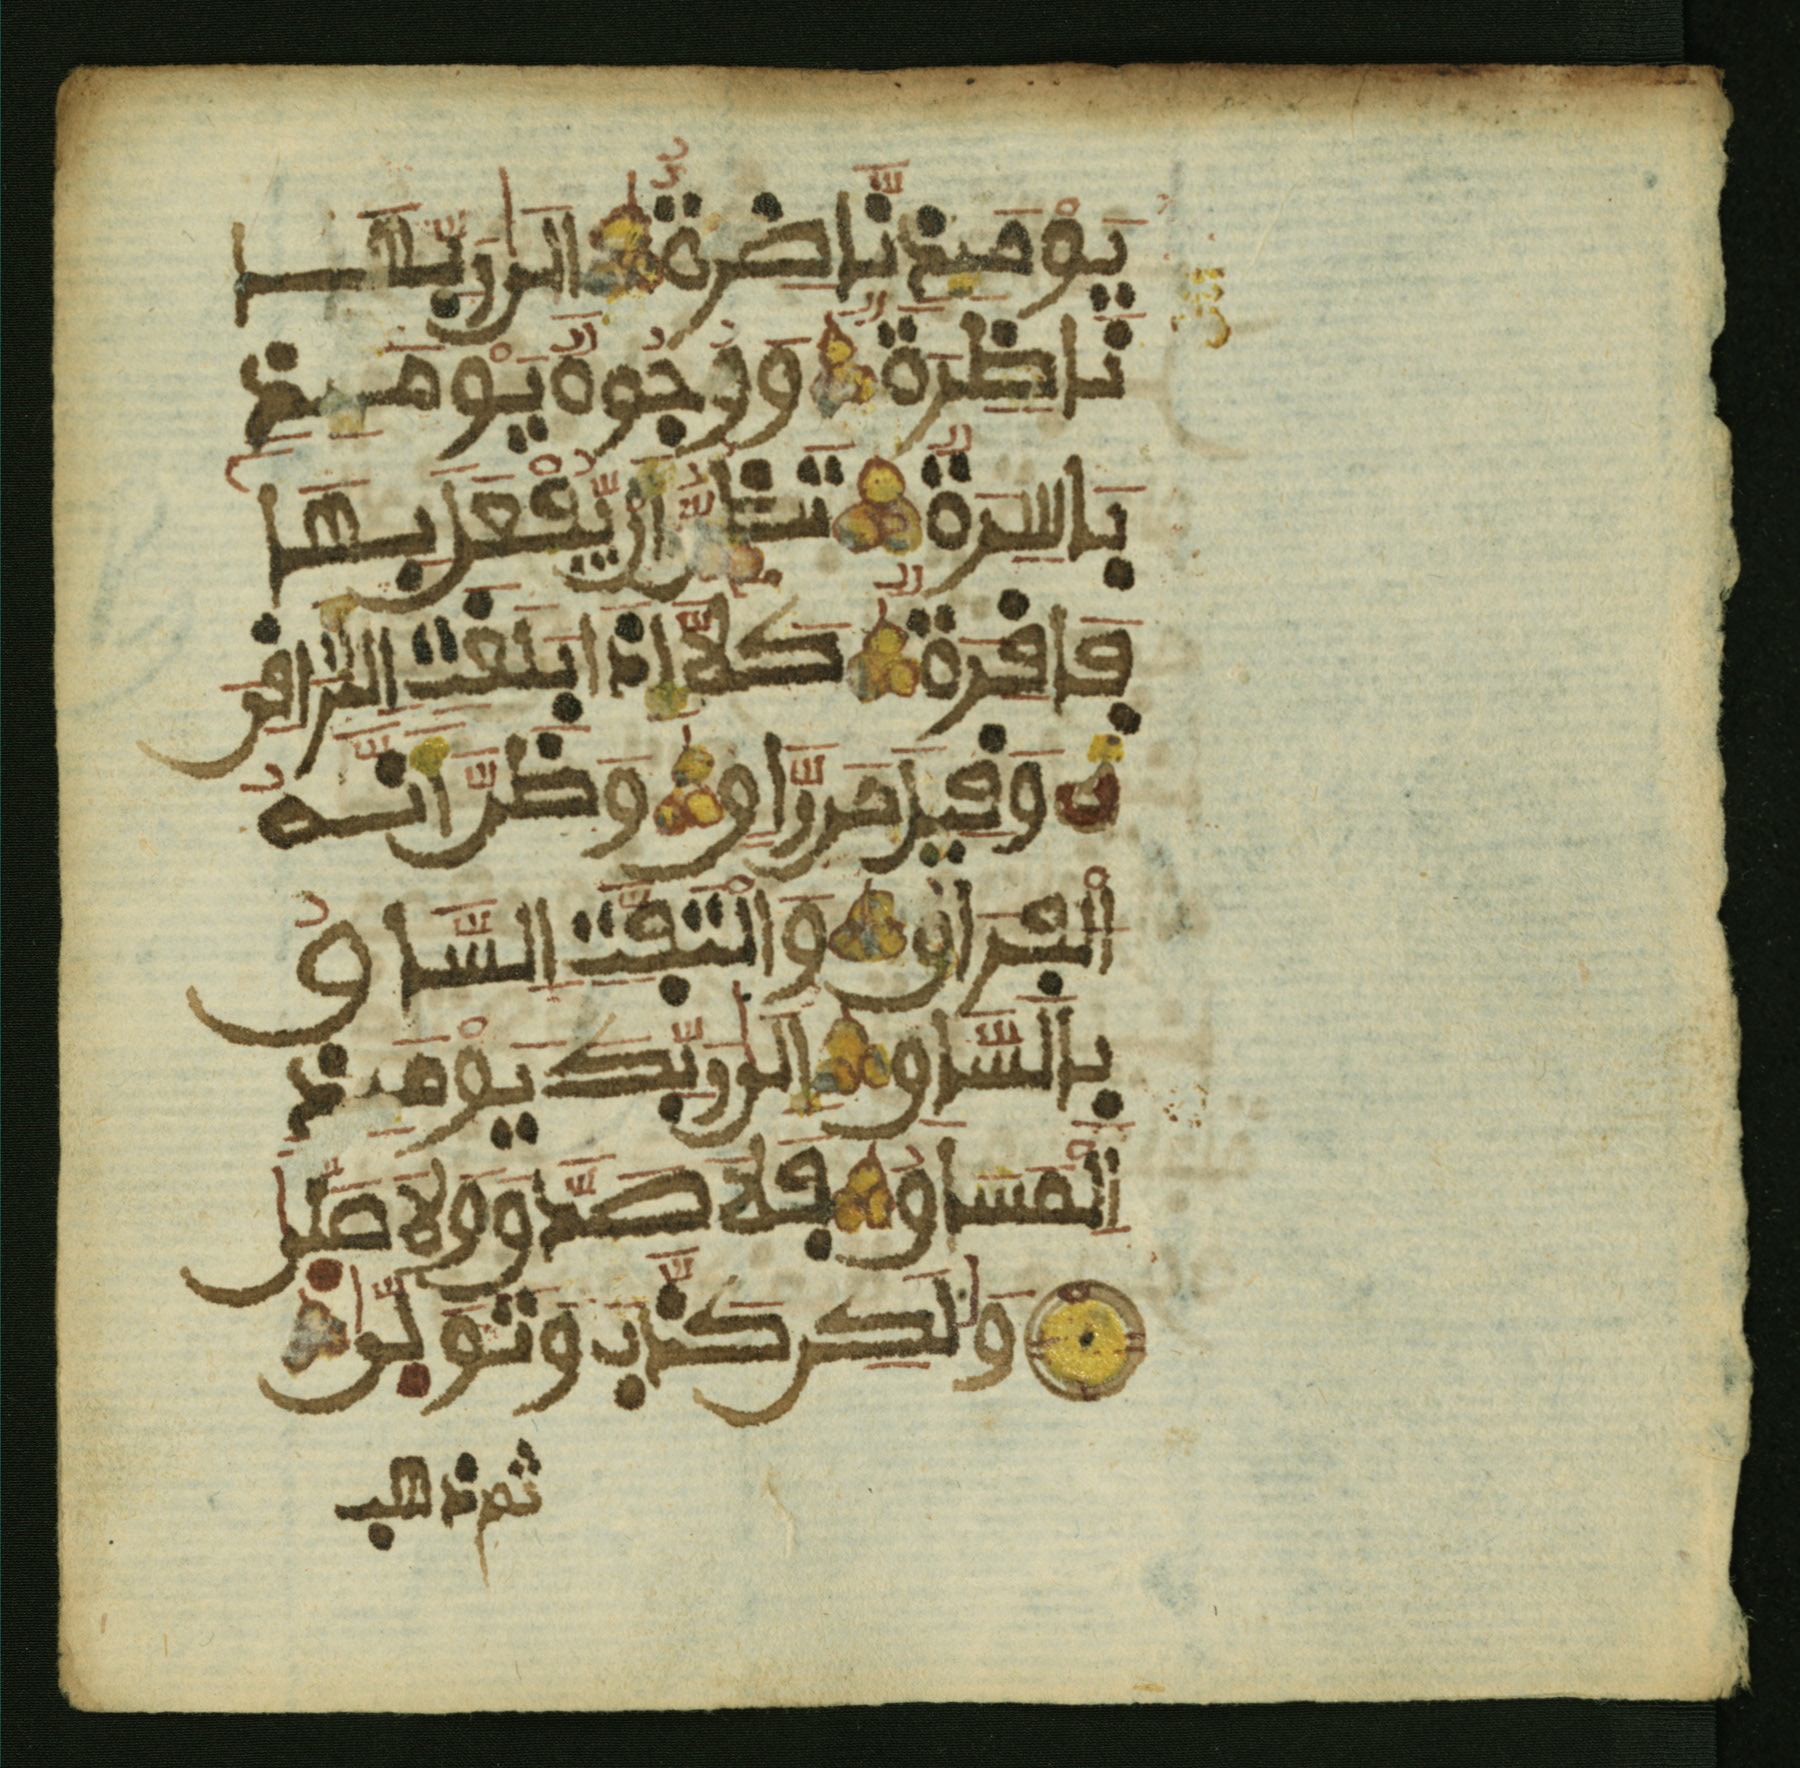 يَوْمَئِذٍ نَّاضِرَةٌ اِلَىٰ رَبِّهَا
نَاظِرَةٌ وَوُجُوهٌ يَوْمَئِذٍ
بَاسِرَةٌ تَظُنُّ أَنْ يُّفْعَلَ بِهَا
فَاقِرَةٌ كَلَّا إِذَا بَلَغَتِ التَّرَاقِيَ
وَقِيلَ مَن رَّاقٍ وَظَنَّ أَنَّهُ
الْفِرَاقُ وَالْتَفَّتِ السَّاقُ
بِالسَّاقِ إِلَىٰ رَبِّكَ يَوْمَئِذٍ
الْمَسَاقُ فَلَا صَدَّقَ وَلَا صَلَّىٰ
وَلَٰكِن كَذَّبَ وَتَوَلَّىٰ
ثم ذهب